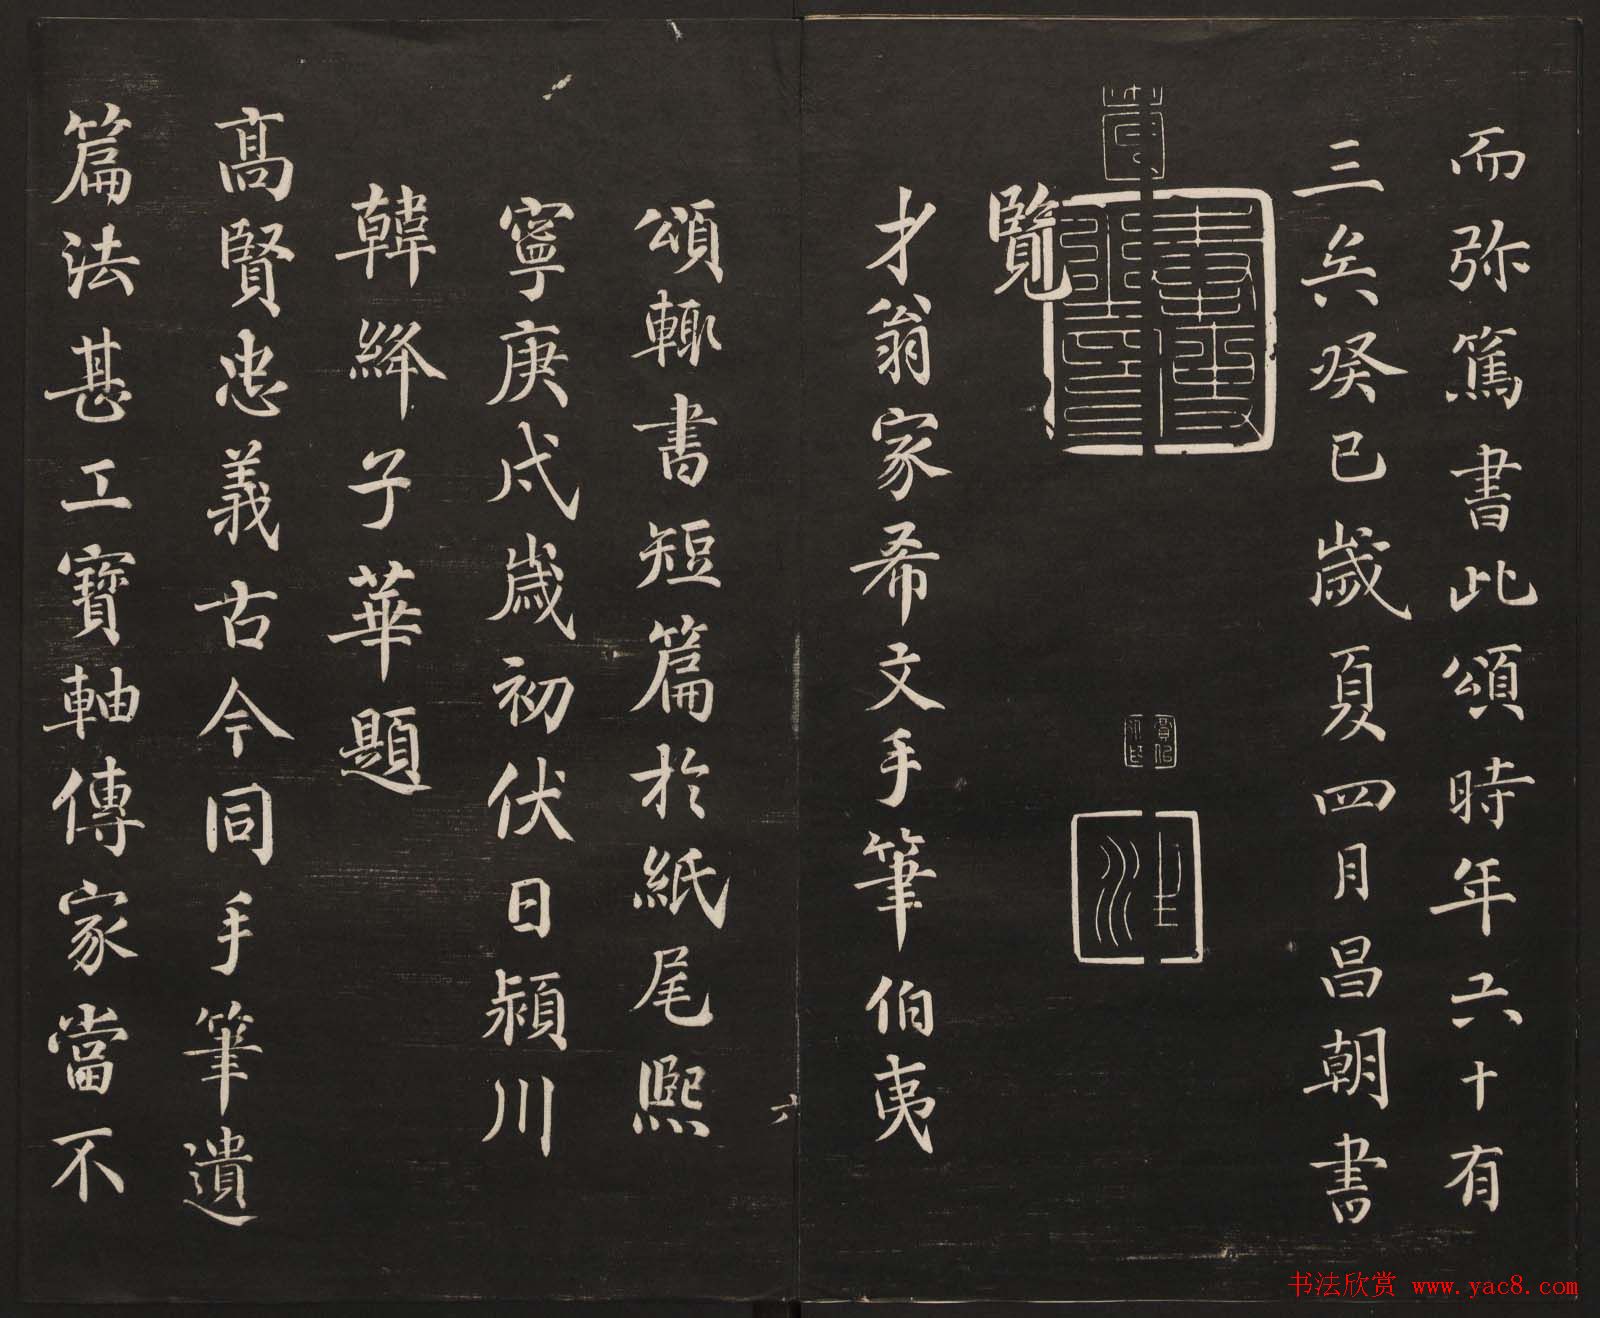 而弥篤書此頌時年六十有
三矣癸巳歲夏四月昌朝書
覽
才翁家希文手筆伯夷
頌輙書短篇於紙尾熙
寧庚戌歲初伏日潁川
韓絳子華題
高賢忠義古今同手筆遺
篇法甚工寶軸傳家當不
六
书法欣赏 www.yac8.com